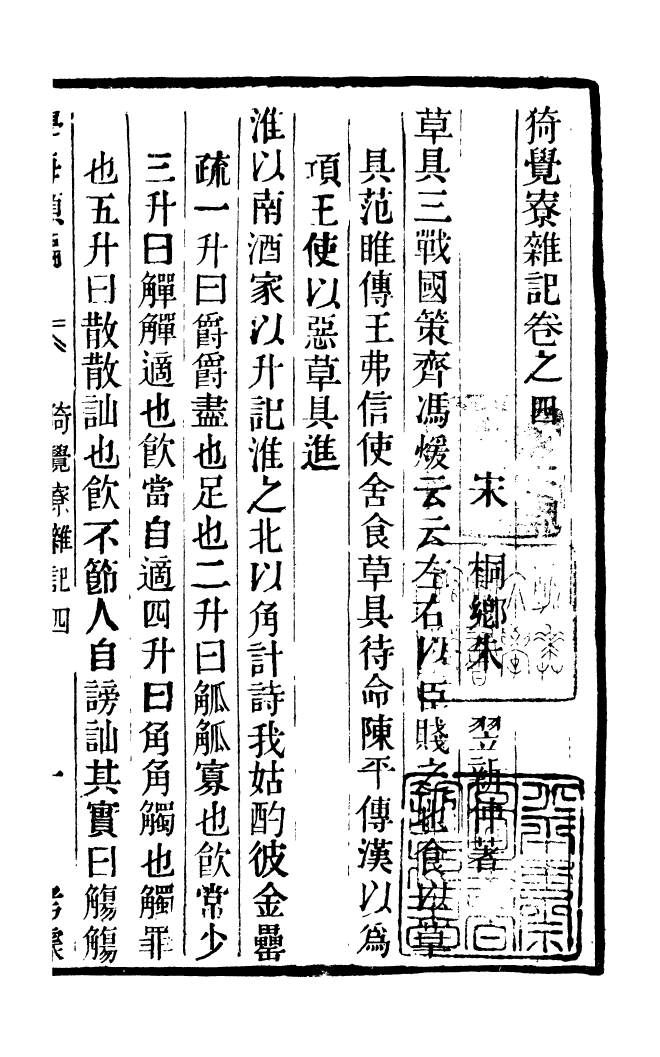 猗覺寮雜記卷之四
宋 桐鄉朱 翌新仲著
草具三戰國策齊馮煖云云左右以臣賤之也食以草
具范睢傳王弗信使舍食草具待命陳平傳漢以爲
項王使以惡草具進
淮以南酒家以升記淮之北以角計詩我姑酌彼金罍
疏一升曰爵爵盡也足也二升曰觚觚寡也飮常少
三升曰觶觶適也飮當自適四升曰角角觸也觸罪
也五升曰散散訕也飮不節人自謗訕其實曰觴觴
猗覺寮雜記四 一